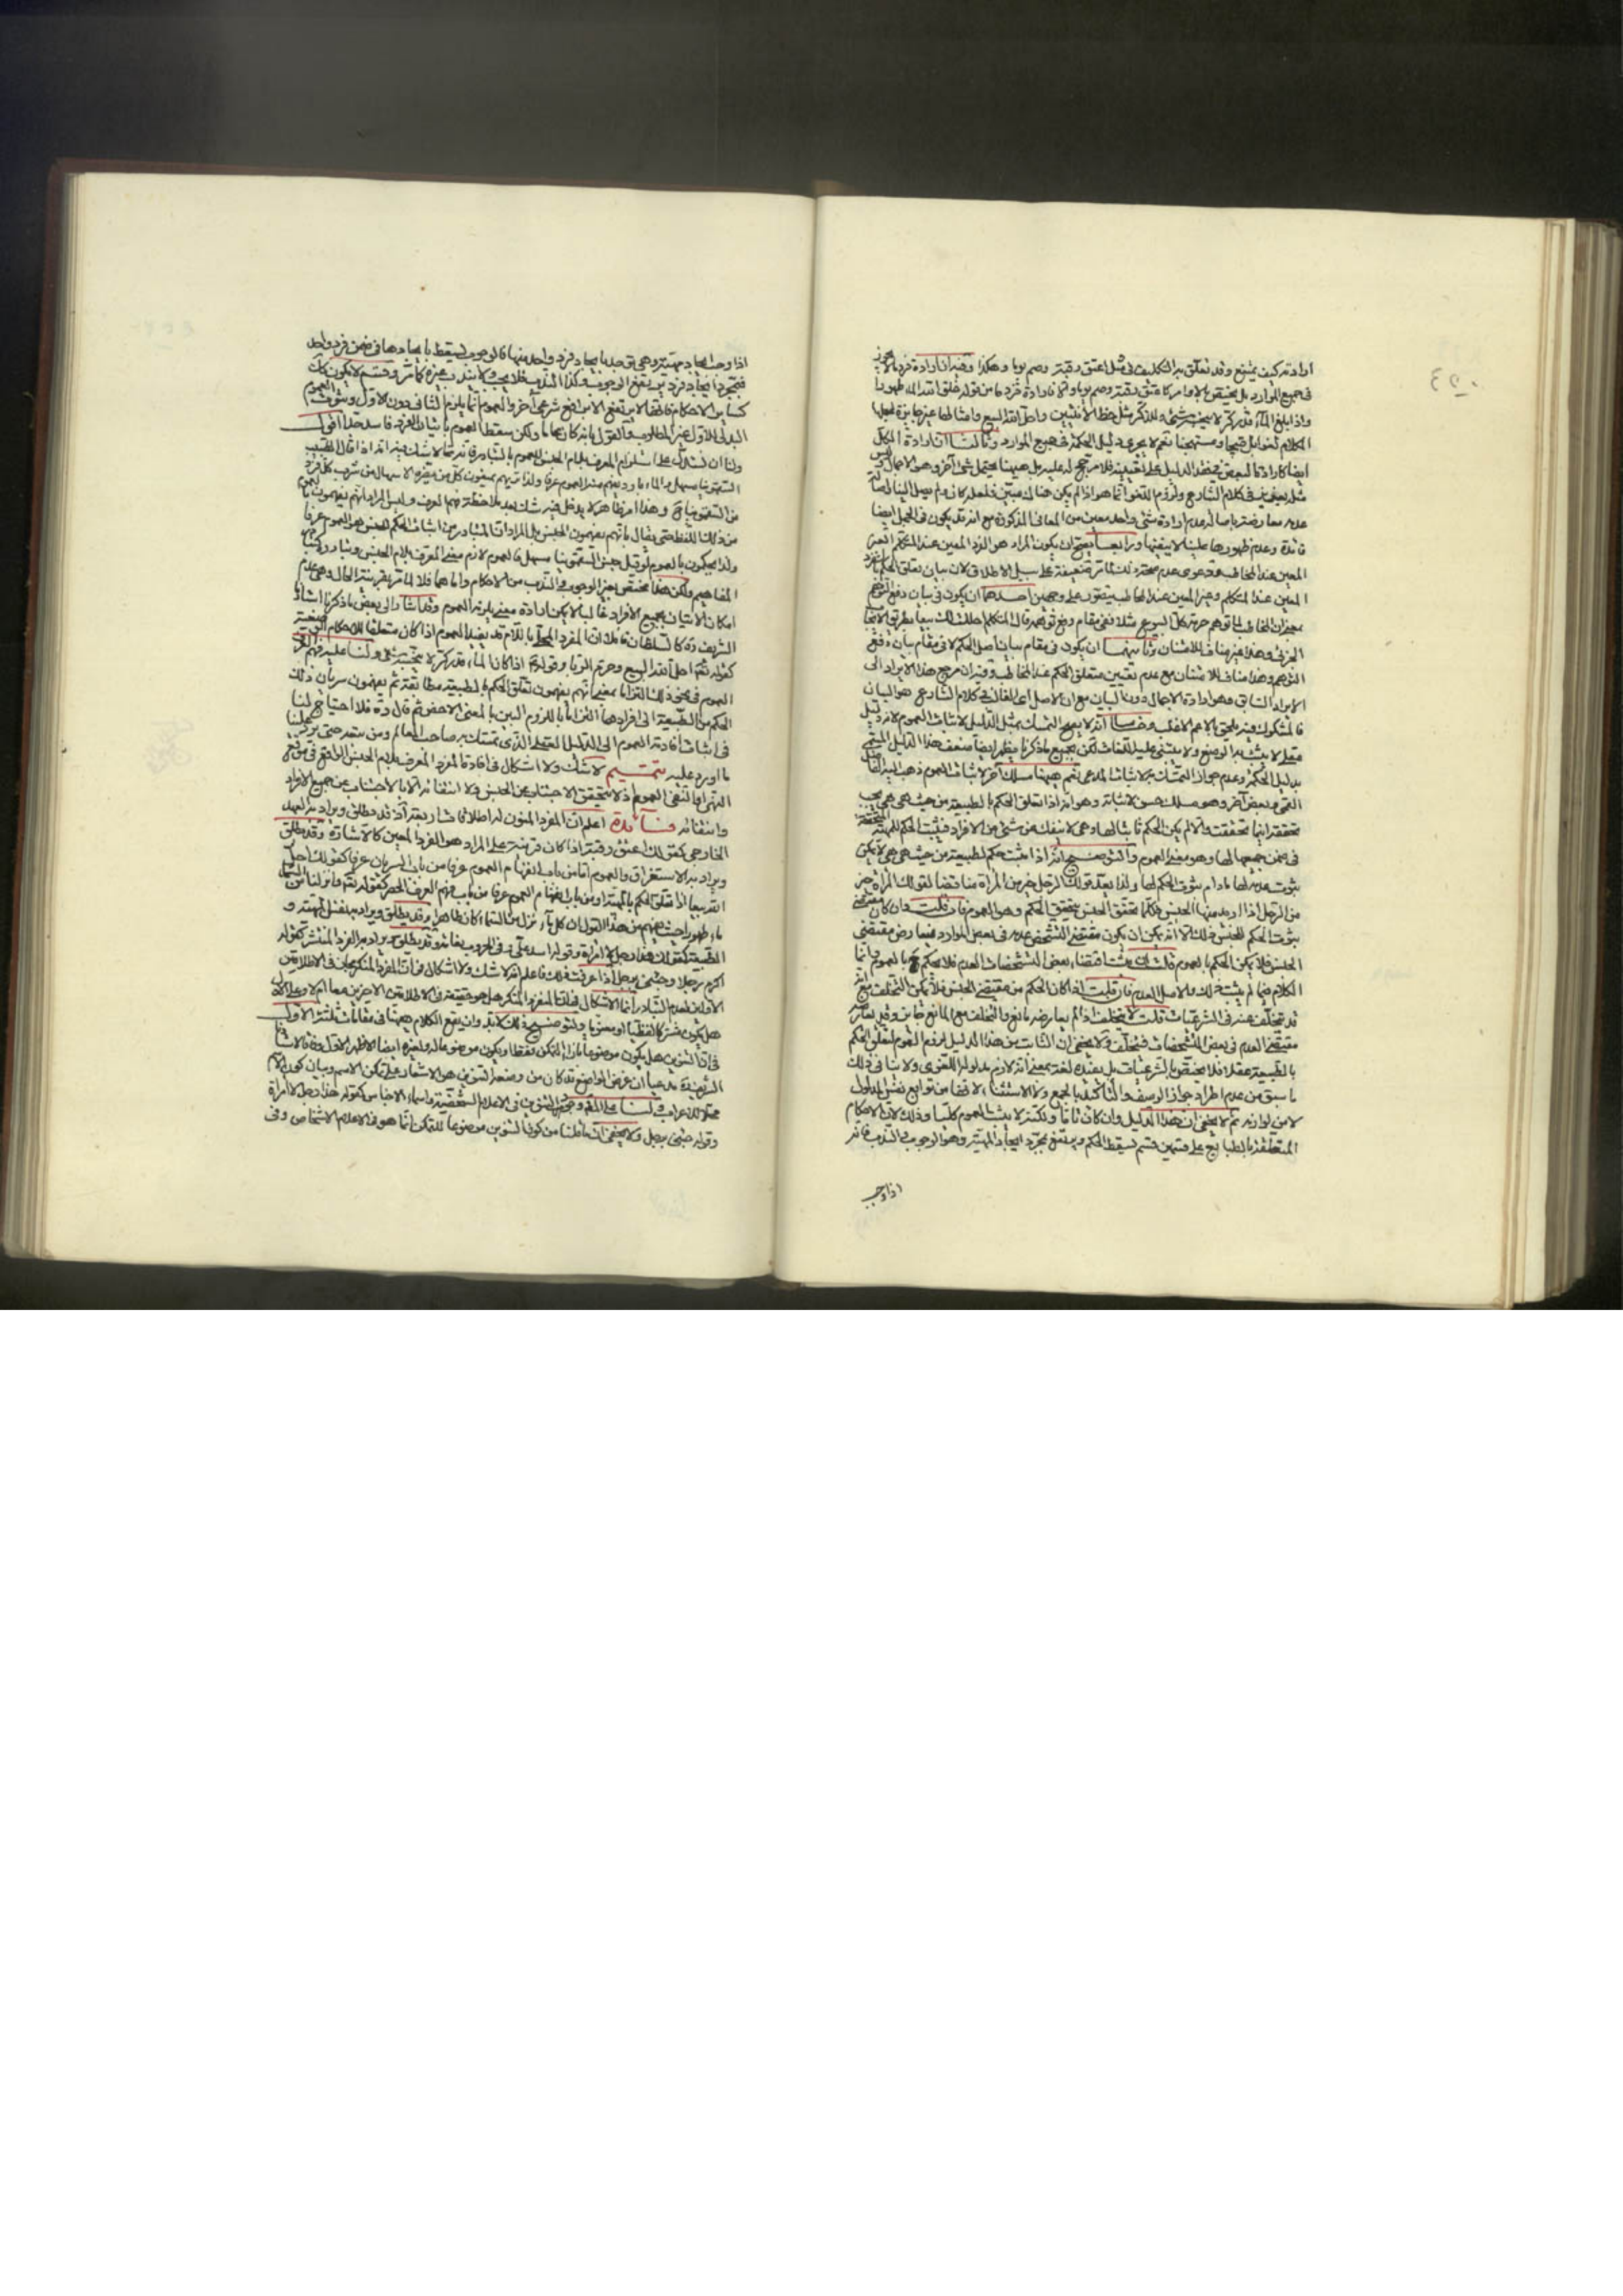 ارادته كيف يمتنع وقد تعلق به التكليف فى مثل اعتق رقبة وصم يوما وهكذا وفيه ان ارادة فرد ما لا يجوز
فى جميع الموارد بل يختص بالاوامر كاعتق رقبة وصم يوما والا فارادة فرد ما من قوله خلق الله الماء طهورا
واذا بلغ الماء قدر كر لا ينجسه شئ وللذكر مثل حظ الانثيين واحل الله البيع وامثالها غير جايزة لجعلها
الكلام قبيحا ومستهجنا نعم لا يجرى دليل الحكمة فى جميع الموارد وثالثا ان ارادة الكل
ايضا كارادة البعض الدليل على تعيينه فلا مرجح له عليه بل هيهنا يحتمل شئ آخر وهو الاجمال
فى كلام الشارع ولزوم اللغو انما هو اذا لم يكن هناك مبين فلعله كان ولم يصل الينا
عدمه معارضة باصالة عدم ارادة شئ واحد معين من المعانى المذكورة مع انه قد يكون فى المجمل ايضا
فائدة وعدم ظهورها علينا لا ينفيها ورابعا يصح ان يكون المراد هو الفرد المعين عند المتكلم الغير
المعين عند المخاطب ودعوى عدم صحة ذلك ضعيفة على سبيل الاطلاق لان بيان تعلق الحكم
المعين عند المتكلم وغير المعين عند المخاطب يتصور على وجهين احدهما ان يكون فى بيان دفع
ان المخاطب لما توهم حرمة كل البيوع مثلا ففى مقام دفع توهمه قال المتكلم احللت لك بيعا بطريق الايجاب
الجزئى وهذا غير مناف للامتنان وثانيهما ان يكون فى مقام بيان اصل الحكم لا فى مقام بيان دفع
التوهم وهذا مناف للامتنان مع عدم تعيين متعلق الحكم عند المخاطب وفيه ان مرجع هذا الايراد الى
الايراد السابق وهو ارادة الاجمال دون البيان مع ان الاصل اى الغالب فى كلام الشارع هو البيان
فالمشكوك فيه يلحق بالاعم الاغلب وخامسا انه لا يصح التمسك بمثل الدليل لاثبات العموم لانه دليل
عقلى لا يثبت به الوضع ولا يبتنى عليه اللغات لكن بجميع ما ذكرنا يظهر ايضا ضعف هذا الدليل المسمى
بدليل الحكمة وعدم جواز التمسك به لاثبات المدعى نعم هيهنا مسلك آخر لاثبات العموم ذهب اليه الفاضل
القمى وبعض آخر وهو مسلك حسن لاثباته وهو انه اذا تعلق الحكم بالطبيعة من حيث هى هى يجب
تحققه اينما تحققت والا لم يكن الحكم ثابتا لها وهى لا تنفك عن شئ من الافراد فيثبت الحكم للمهية المتحققة
فى ضمن جميعها لها وهو معنى العموم والتوضيح انه اذا ثبت حكم لطبيعة من حيث هى هى لا يمكن
ثبوت عدمه لها ما دام ثبوت الحكم لها ولذا يعد قولك الرجل خير من المرأة مناقضا لقولك المرأة خير
من الرجل اذا اريد منها الجنس فكلما تحقق الجنس يتحقق الحكم وهو العموم فان قلت وان كان مقتضى
ثبوت الحكم للجنس ذلك الا انه يمكن ان يكون مقتضى التشخص عدمه فى بعض الموارد فيعارض مقتضى
الجنس فلا يمكن الحكم بالعموم قلت ان ثبت اقتضاء بعض التشخصات العدم فلا نحكم بالعموم وانما
الكلام فيما لم يثبت ذلك والاصل العدم فان قلت اذا كان الحكم من مقتضى الجنس فلا يمكن التخلف مع انه
قد تخلف عنه فى الشرعيات قلت لا يتخلف اذا لم يعارضه مانع والتخلف مع المانع جايز وقد يعارضه
مقتضى العدم فى بعض المشخصات فيتخلف ولا يخفى ان الثابت من هذا الدليل لزوم العموم لتعلق الحكم
بالطبيعة عقلا فلا يختص بالشرعيات بل يفيده لغة بمعنى انه لازم مدلوله اللغوى ولا ينافى ذلك
ما سبق من عدم اطراد جواز الوصف والتأكيد بالجمع وكذا الاستثناء لانها من توابع نفس المدلول
لا من لوازمه ثم لا يخفى ان هذا الدليل وان كان تاما ولكنه لا يثبت العموم كليا وذلك لان الاحكام
المتعلقة بالطبايع على قسمين قسم يسقط الحكم ويرتفع بمجرد ايجاد المهية وهو الوجوب والندب فانه
اذا وجب
اذا وجب ايجاد مهية وهى توجد بايجاد فرد واحد منها فالوجوب يسقط بايجادها فى ضمن فرد واحد
فبمجرد ايجاد فرد يرتفع الوجوب وكذا الندب فلا يجب ولا يندب غيره كما مر وقسم لا يكون كك
كساير الاحكام فانها لا يرتفع الا برافع شرعى آخر والعموم انما يلزم الثانى دون الاول وثبوت العموم
البدلى للاول غير المطلوب والقول بانه كان عاما ولكن سقط العموم باتيان الفرد فاسد جدا اقول
ولنا ان نستدل على استلزام المعرف بلام الجنس للعموم بالتبادر فانه مما لا شك فيه انه اذا قال الطبيب
السقمونيا مسهل والماء بارد يفهم منه العموم عرفا ولذا
من السقمونيا وهذا امر ظاهر لا يدخل فيه شك بعد ملاحظة فهم العرف وليس المراد انهم يفهمون العموم
من ذلك اللفظ حتى يقال بانهم يفهمون الجنس بل المراد ان المتبادر من اثبات الحكم للجنس هو العموم عرفا
ولذا يحكمون بالعموم لو قيل جنس السقمونيا مسهل فالعموم لازم معنى المعرف بلام الجنس
المفاهيم ولكن هذا مختص بغير الوجوب والندب من الاحكام واما هما فلا لما مر بقرينة الحال وهى عدم
امكان الاتيان بجميع الافراد غالبا لا يمكن ارادة معنى يلزمه العموم وقد اشار الى بعض ما ذكرنا استاد
الشريف قده كالسلطان قائلا ان المفرد المحلى باللام قد يفيد العموم اذا كان متعلقا للاحكام الوضعية
كقوله تعالى احل الله البيع وحرم الربا وقوله اذا كان الماء قدر كر لا ينجسه شئ ولنا عليه فهم العرف
العموم فى نحو ذلك التزاما بمعنى انهم يفهمون تعلق الحكم بالطبيعة مطابقة ثم يفهمون سريان ذلك
الحكم من الطبيعة الى افرادها التزاما باللزوم البين بالمعنى الاخص ثم قال قده فلا احتياج لنا
فى اثبات افادته العموم الى الدليل العقلى الذى تمسك به صاحب المعالم ومن بعده حتى يرد علينا
ما اورد عليه تتميم لا شك ولا اشكال فى افادة المفرد المعرف بلام الجنس الواقع فى موقع
النهى او النفى العموم اذ لا يتحقق الاجتناب عن الجنس ولا انتفائه الا بالاجتناب عن جميع الافراد
وانتفائه فائدة اعلم ان المفرد المنون له اطلاقات اربعة اذ قد يطلق ويراد به العهد
الخارجى كقولك اعتق رقبة اذا كان قرينة على المراد هو الفرد المعين كالاشارة وقد يطلق
ويراد به الاستغراق والعموم اما من باب انفهام العموم عرفا من باب السريان عرفا كقولك احل
الله بيعا اذا تعلق الحكم بالمهية او من باب انفهام العموم عرفا من باب فهم العرف الحصر كقوله تعالى وانزلنا من السماء
ماء طهورا حيث يفهم من هذا القول ان كل ماء نزل من السماء كان طاهرا وقد يطلق ويراد به نفس المهية و
الطبيعة كقولك هذا رجل لا امراة وقوله اسد على وفى الحروب نعامة وقد يطلق ويراد به الفرد المنتشر كقوله
اكرم رجلا وجئنى برجل اذا عرفت ذلك فاعلم انه لا شك ولا اشكال فى ان المفرد المنكر مجاز فى الاطلاقين
الاولين لعدم التبادر انما الاشكال فى ان المفرد المنكر هل هو حقيقة فى الاطلاقين الاخيرين معا ام لا وعلى الاول
هل يكون مشتركا لفظيا او معنويا ولتوضيح ذلك لابد وان يقع الكلام هيهنا فى مقامات ثلثة الاول
فى ان التنوين هل يكون موضوعا بازاء التمكن فقط او يكون موضوعا له ولغيره ايضا الاظهر الاول وفاقا لاستادنا
الشريف قده مدعيا ان غرض الواضع قد كان من وضعه التنوين هو الاشعار على تمكن الاسم وبيان كون الاسم
محلا للاعراب ولنا على المقام وجود التنوين فى الاعلام الشخصية واسماء الاجناس كقوله هذا رجل لا امراة
وقوله جئنى برجل ولا يخفى ان ما قلنا من كون التنوين موضوعا للتمكن انما هو فى الاعلام الاشخاص وفى